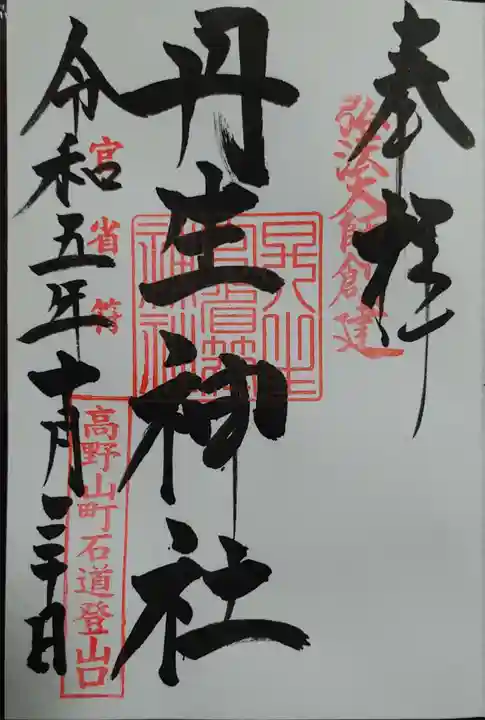 奉拝
弘法大師創建
丹生神社
宮省符
令和五年十月三十日
高野山町石道登山口